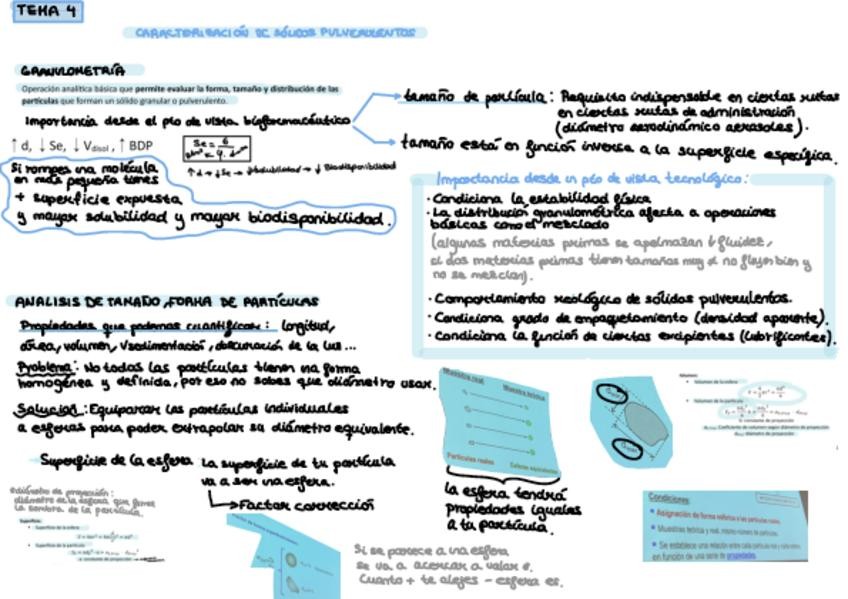 TEMA 4
CARACTERIZACIÓN DE SÓLIDOS PULVERULENTOS
GRANULOMETRÍA
Operación analítica básica que permite evaluar la forma, tamaño y distribución de las
partículas que forman un sólido granular o pulverulento.
Importancia desde el pto de vista biofarmacéutico
tamaño de partícula: Requisito indispensable en ciertas rutas
en ciertas rutas de administración
(diámetro aerodinámico aerosoles).
tamaño está en función inversa a la superficie específica.
↑ d, ↓ Se, ↓ Vdisol, ↑ BDP
Se = 6
↑ d → ↓ Se → ↓ solubilidad → ↓ Biodisponibilidad
Si rompes una molécula
en más pequeña tienes
+ superficie expuesta
y mayor solubilidad y mayor biodisponibilidad.
Importancia desde un pto de vista tecnológico:
· Condiciona la estabilidad física
· La distribución granulométrica afecta a operaciones
básicas como el mezclado
(algunas materias primas se apelmazan ↓ fluidez,
si dos materias primas tienen tamaños muy ≠ no fluyen bien y
no se mezclan).
· Comportamiento reológico de sólidos pulverulentos.
· Condiciona grado de empaquetamiento (densidad aparente).
· Condiciona la función de ciertos excipientes (lubrificantes).
ANALISIS DE TAMAÑO, FORMA DE PARTÍCULAS
Propiedades que podemos cuantificar: longitud,
área, volumen, Vsedimentación, obscuración de la luz...
Problema: No todas las partículas tienen una forma
homogénea y definida, por eso no sabes que diámetro usar.
Solución: Equiparar las partículas individuales
a esferas para poder extrapolar su diámetro equivalente.
Superficie de la esfera
La superficie de tu partícula
va a ser una esfera.
Factor corrección
diámetro de proyección:
diámetro de la esfera que forma
la sombra de la partícula.
Superficie:
• Superficie de la esfera
• Superficie de la partícula
Muestra real
Muestra teórica
Partículas reales
Esferas equivalentes
la esfera tendrá
propiedades iguales
a tu partícula.
Si se parece a una esfera
se va a acercar a valor
Cuanto + te alejes - esfera es.
Volumen:
• Volumen de la esfera
• Volumen de la partícula
Condiciones:
• Asignación de forma esférica a las partículas reales.
• Muestras teórica y real, mismo número de partículas.
• Se establece una relación entre cada partícula real y cada esfera,
en función de una serie de propiedades.